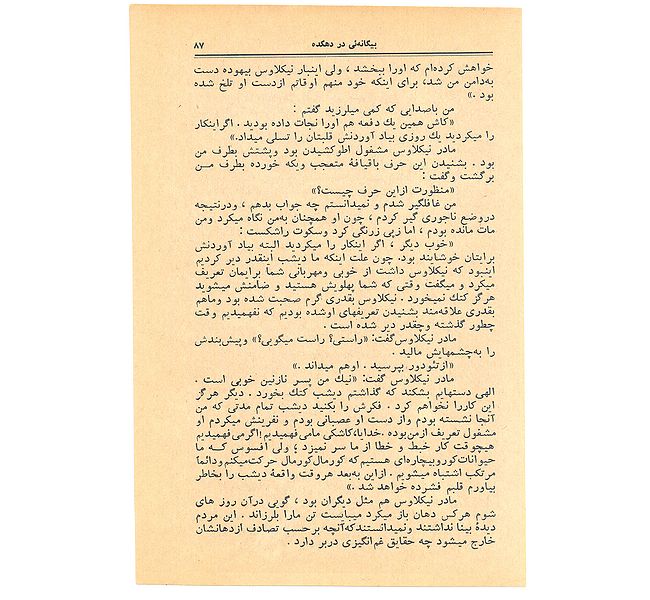 بیگانه‌ئی در دهکده ۸۷
خواهش کرده‌ام که اورا ببخشد ، ولی اینبار نیکلاوس بیهوده دست
به‌دامن من شد، برای اینکه خود منهم اوقاتم ازدست او تلخ شده
بود .»
من باصدایی که کمی میلرزید گفتم :
«کاش همین یك دفعه هم اورا نجات داده بودید . اگراینکار
را میکردید یك روزی بیاد آوردنش قلبتان را تسلی میداد.»
مادر نیکلاوس مشغول اطوکشیدن بود وپشتش بطرف من
بود . بشنیدن این حرف باقیافهٔ متعجب ویکه خورده بطرف مــن
برگشت وگفت :
«منظورت ازاین حرف چیست؟»
من غافلگیر شدم و نمیدانستم چه جواب بدهم ، ودرنتیجه
دروضع ناجوری گیر کردم ، چون او همچنان به‌من نگاه میکرد ومن
مات مانده بودم ، اما زپی زرنگی کرد وسکوت راشکست :
«خوب دیگر ، اگر اینکار را میکردید البته بیاد آوردنش
برایتان خوشایند بود. چون علت اینکه ما دیشب اینقدر دیر کردیم
اینبود که نیکلاوس داشت از خوبی ومهربانی شما برایمان تعریف
میکرد و میگفت وقتی که شما پهلویش هستید و ضامنش میشوید
هرگز کتك نمیخورد . نیکلاوس بقدری گرم صحبت شده بود وماهم
بقدری علاقه‌مند بشنیدن تعریفهای اوشده بودیم که نفهمیدیم وقت
چطور گذشته وچقدر دیر شده است .
مادر نیکلاوس‌گفت: «راستی؟ راست میگویی؟» وپیش‌بندش
را به‌چشمهایش مالید .
«ازتئودور بپرسید . اوهم میداند .»
مادر نیکلاوس گفت: «نیك من پسر نازنین خوبی است .
الهی دستهایم بشکند که گذاشتم دیشب کتك بخورد . دیگر هرگز
این کاررا نخواهم کرد . فکرش را بکنید دیشب تمام مدتی که من
آنجا نشسته بودم واز دست او عصبانی بودم و نفرینش میکردم او
مشغول تعریف ازمن‌بوده .خدایا،کاشکی مامی‌فهمیدیم!اگرمی‌فهمیدیم
هیچوقت کار خبط و خطا از ما سر نمیزد ؛ ولی افسوس کــه ما
حیوانات‌کوروبیچاره‌ای هستیم‌که کورمال‌کورمال حرکت‌میکنم ودائماً
مرتکب اشتباه میشویم . ازاین به‌بعد هروقت واقعهٔ دیشب را بخاطر
بیاورم قلبم فشرده خواهد شد .»
مادر نیکلاوس هم مثل دیگران بود ، گویی درآن روز های
شوم هرکس دهان باز میکرد میبایست تن مارا بلرزاند . این مردم
دیدهٔ بینا نداشتند ونمیدانستندکه‌آنچه برحسب تصادف ازدهانشان
خارج میشود چه حقایق غم‌انگیزی دربر دارد .